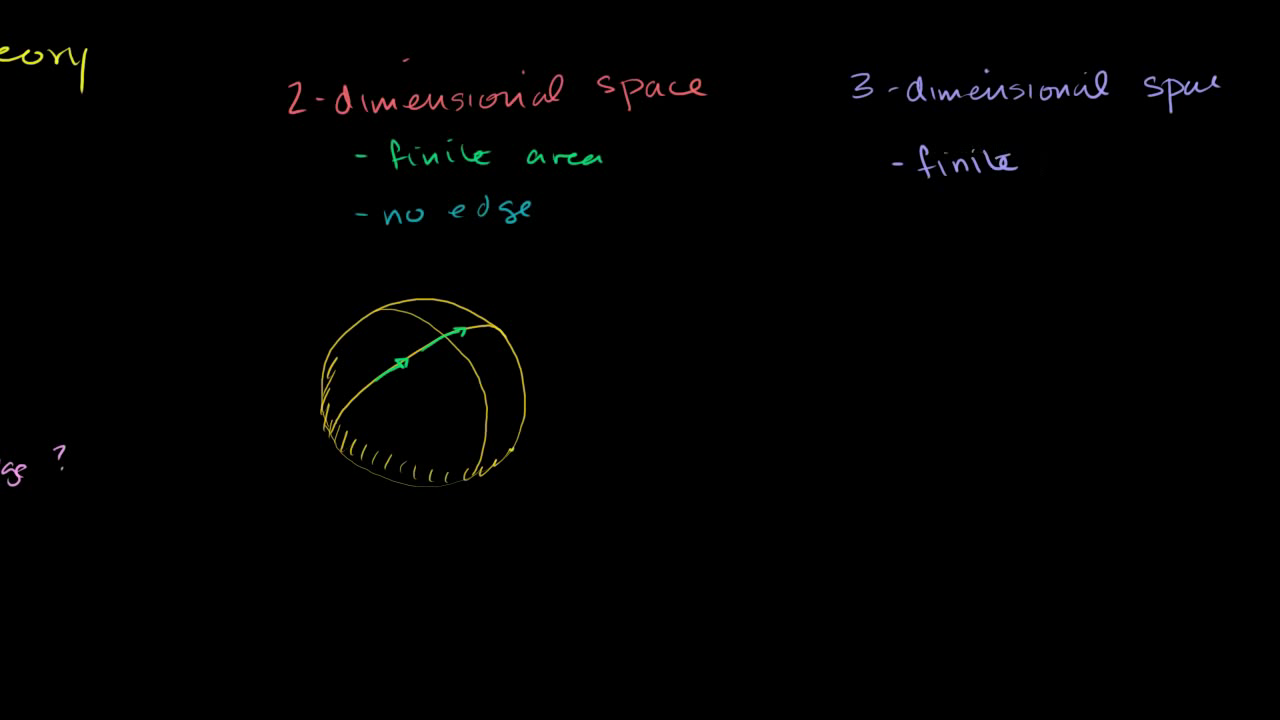 eory
2-dimensional space
- finite area
- no edge
3-dimensional space
- finite
ge ?